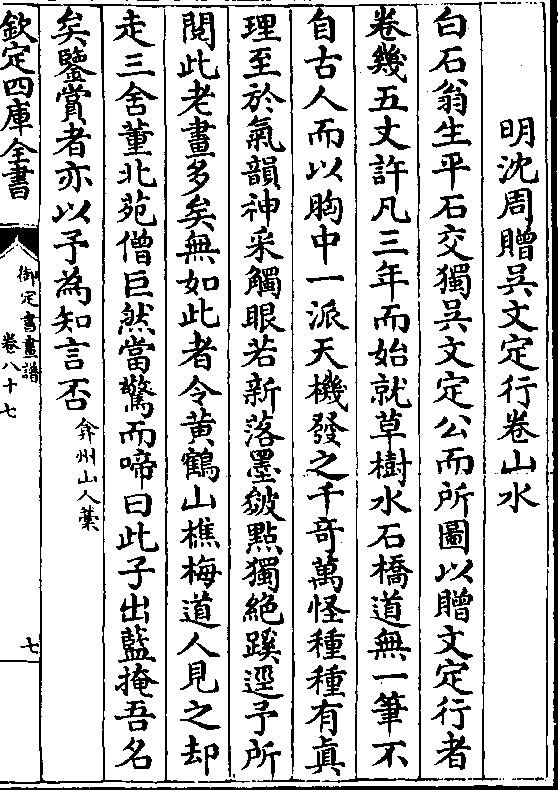 明沈周贈吳文定行卷山水
白石翁生平石交獨吳文定公而所圖以贈文定行者
卷幾五丈許凡三年而始就草樹水石橋道無一筆不
自古人而以胸中一派天機發之千奇萬怪種種有真
理至於氣韻神采觸眼若新落墨皴點獨絕蹊逕予所
閱此老畫多矣無如此者令黃鶴山樵梅道人見之却
走三舍董北苑僧巨然當驚而啼曰此子出藍掩吾名
矣鑒賞者亦以予為知言否弇州山人藁
欽定四庫全書
御定書畫譜
卷八十七
七